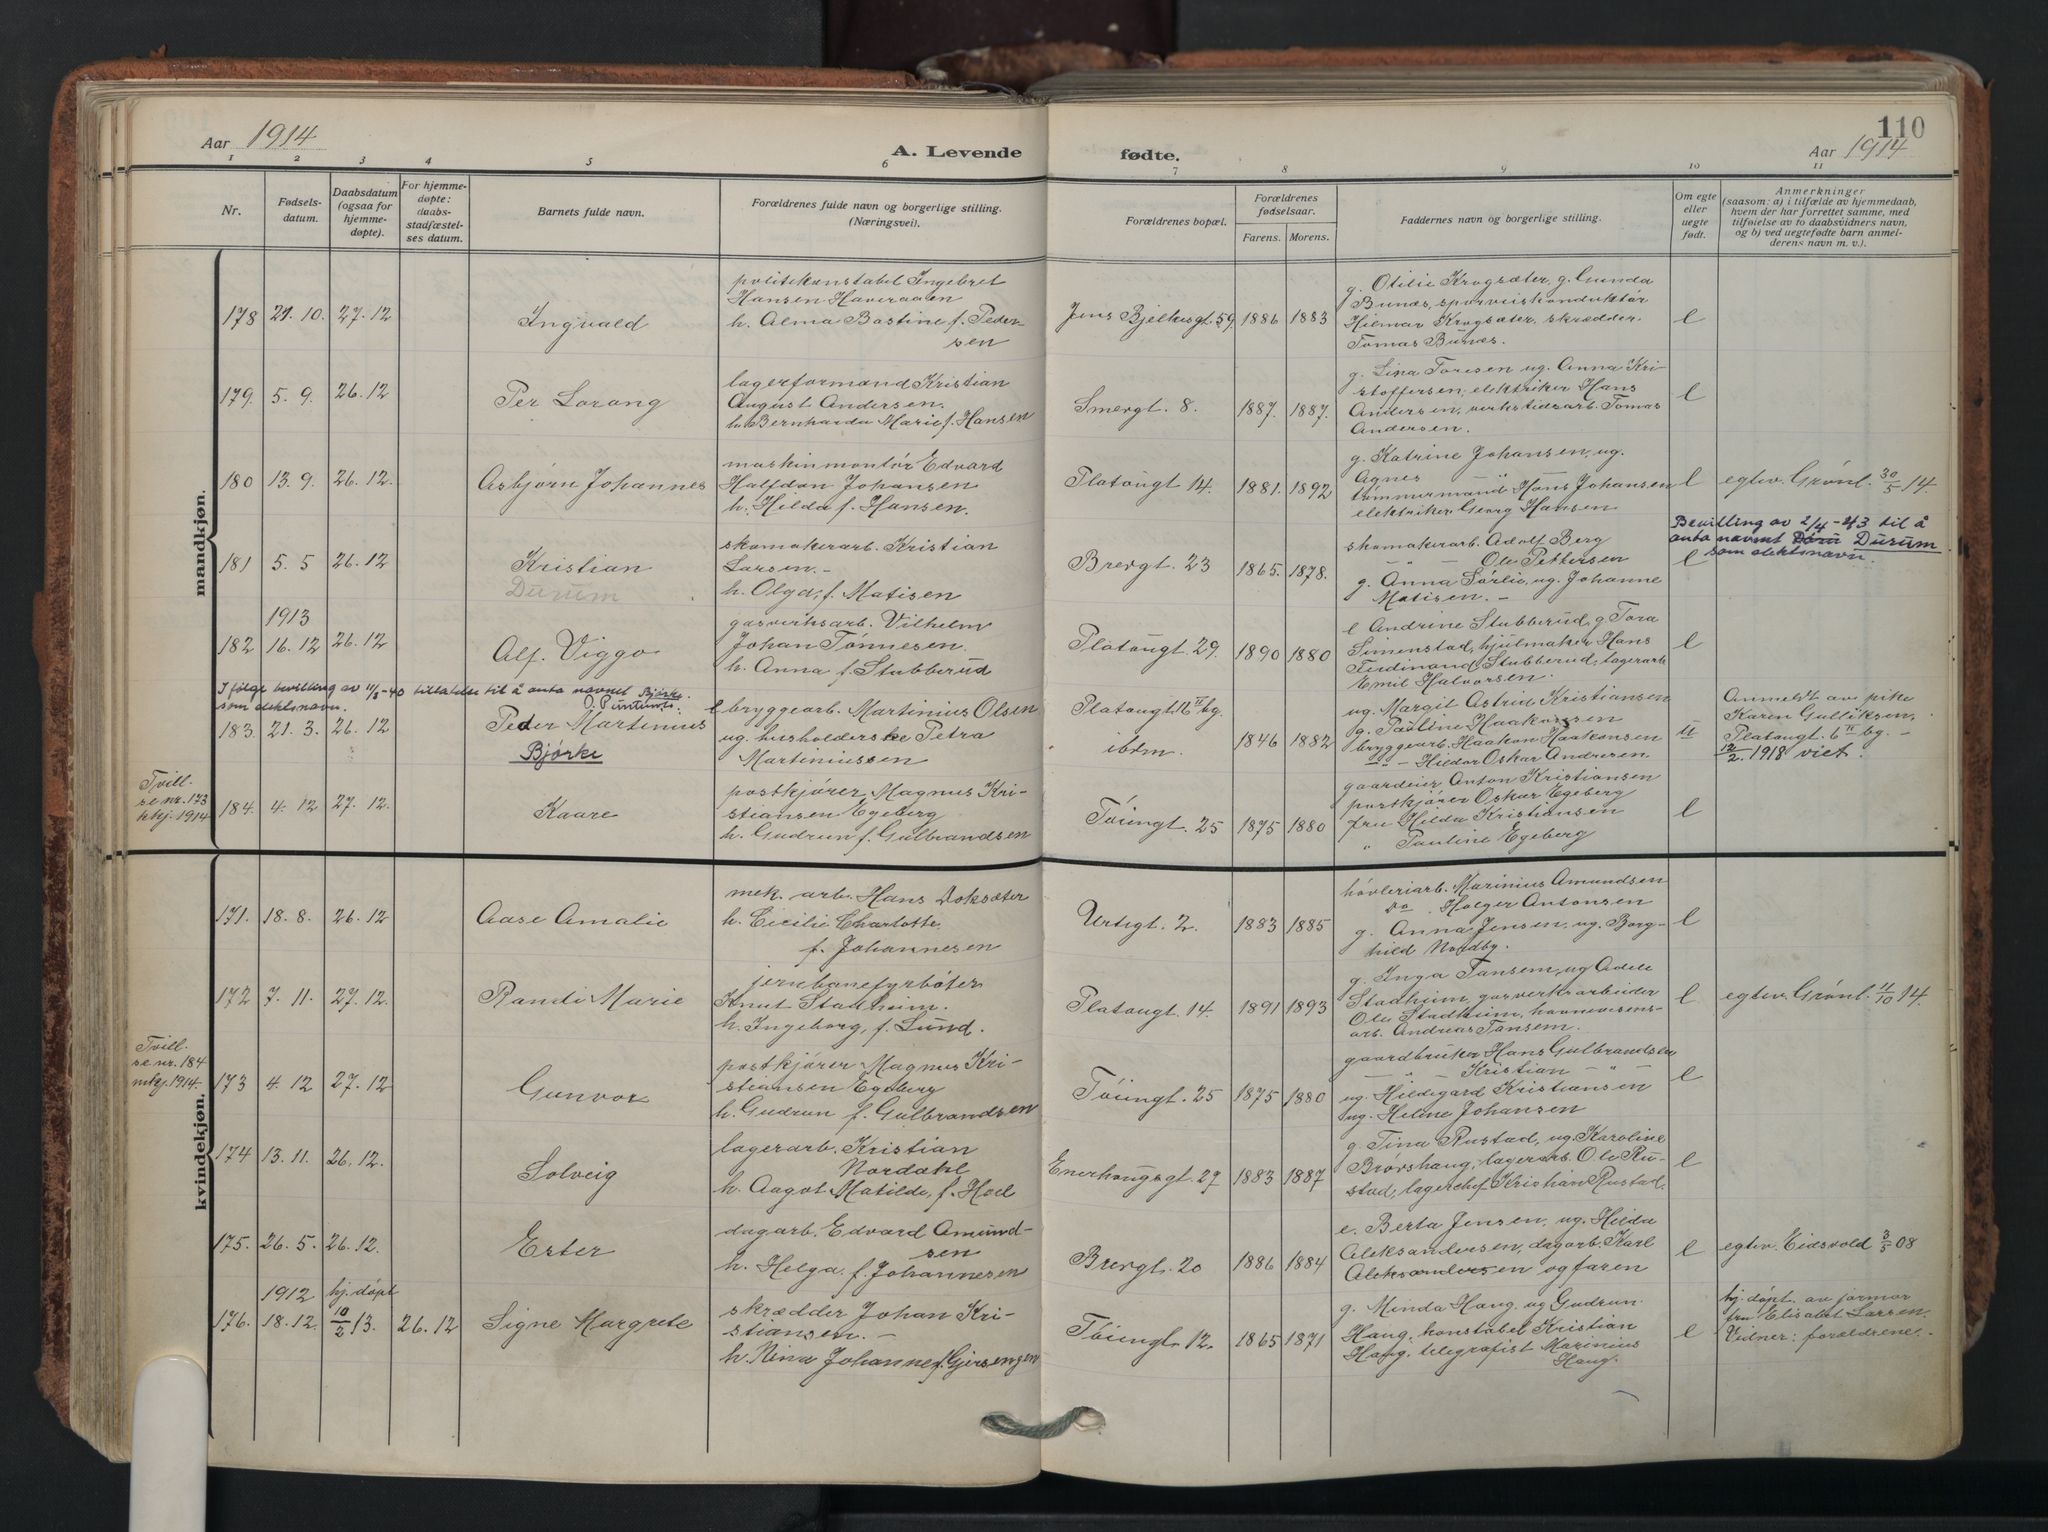 Aar 1914
A. Levende fødte.
110
Aar 1914
1 2 3 4 5 6 7 8 9 10 11
Nr.
Fødsels-datum.
Daabsdatum (ogsaa for hjemme-døpte).
For hjemme-døpte: daabs-stadfæstel-ses datum.
Barnets fulde navn.
Forældrenes fulde navn og borgerlige stilling. (Næringsvei).
Forældrenes bopæl.
Forældrenes fødselsaar.
Farens. Morens.
Faddernes navn og borgerlige stilling.
Om egte eller uegte født.
Anmerkninger
(saasom: a) i tilfælde av hjemmedaab, hvem der har forrettet samme, med tilføielse av to daabsvidners navn, og b) ved uegtefødte barn anmel-derens navn m. v.).
mandkjøn.
178 21. 10. 27. 12 Ingvald
politikonstabel Ingebret
Hansen Haveraaen
h. Alma Bastine f. Peder
sen
Jens Bjelkesgt. 59 1886 1883
g. Otilie Krogsæter, g. Gunda
Bunæs, sporveiskonduktør
Hilmar Krogsæter, skrædder
Tomas Bunæs.
e
179. 5. 9. 26. 12 Per Lorang
lagerformand Kristian
August Andersen.
h. Bernharda Marie f. Hansen
Smergt. 8. 1887. 1887.
g. Lina Toresen ug. Anna Kri-
stoffersen, elektriker Hans
Andersen, verkstidsarb. Tomas
Andersen.
e
180 13. 9. 26. 12. Asbjørn Johannes
maskinmontør Edvard
Halfdan Johansen
h. Hilda f. Hansen.
Platougt. 14. 1881. 1892
g. Katrine Johansen, ug.
Agnes - " -
tømmermand Hans Johansen
elektriker Georg Hansen
e egtev. Grønl. 30/5 14.
181 5. 5 26. 12 Kristian
Durum
skomakerarb. Kristian
Larsen. -
h. Olga, f. Matisen
Brevgt. 23 1865. 1878.
skomakerarb. Adolf Berg
- " - Ole Pettersen
g. Anna Sørlie, ug. Johanne
Matisen. -
e
Bevilling av 2/4-23 til å
anta navnet Durum
som slektsnavn.
1913
182 16. 12 26. 12 Alf Viggo
gasverksarb. Vilhelm
Johan Tønnesen.
h. Anna f. Stubberud
Platougt. 29. 1890 1880
e Andrine Stubberud, g Tora
Simenstad, hjulmaker Hans
Ferdinand Stubberud, lagerarb
Emil Halvorsen.
e
I følge bevilling av 11/3-40 tillatelse til å anta navnet Bjørke
som slektsnavn.
183. 21. 3. 26. 12 Peder Martinius
Bjørke
e bryggearb. Martinius Olsen
ug. husholderske Petra
Martiniussen
Platougt. 16 II bg.
ibdm. 1846 1882
ug. Margit Astrid Kristiansen
g. Pauline Haakonsen
bryggearb. Haakon Haakonsen
- " - Hildor Oskar Andresen
u
Anmeldt av pike
Karen Gulliksen,
Platougt. 6 II bg. -
12/2. 1918 viet.
Tvill.
se nr. 173
kkj. 1914
184. 4. 12 27. 12. Kaare
postkjører Magnus Kri-
stiansen Egeberg
h. Gudrun f. Gulbrandsen
Tøiengt. 25 1875 1880
gaardeier Anton Kristiansen
postkjører Oskar Egeberg
fru Hilda Kristiansen
" Pauline Egeberg
e
kvindekjøn.
171. 18. 8. 26. 12 Aase Amalie
mek. arb. Hans Doksæter
h. Cicilie Charlotte
f. Johannesen
Urtegt. 2. 1883 1885
høvleriarb. Marinius Amundsen
Do Holger Antonsen
g. Anna Jensen, ug. Borg-
hild Nordby.
e
172 7. 11. 27. 12. Randi Marie
jernbanefyrbøter
Knut Stadheim.
h. Ingeborg, f. Lund.
Platougt. 14. 1891 1893
g. Inga Tansem, ug Adele
Stadheim, gasverksarbeider
Ole Stadheim, havnevesens-
arb. Andreas Tansem.
e egtev. Grønl. 11/10 14.
Tvill.
se nr. 184
mkj. 1914.
173 4. 12 27. 12 Gunvor
postkjører Magnus Kri-
stiansen Egeberg
h. Gudrun f. Gulbrandsen
Tøiengt. 25 1875 1880
gaardbruker Hans Gulbrandsen
- " - Kristian - " -
ug. Hildegard Kristiansen
ug. Heline Johansen
e
174 13. 11. 26. 12. Solveig
lagerarb. Kristian
Nordahl
h. Aagot Matilde, f. Hoel
Enerhaugsgt. 27 1883 1887
g. Tina Rustad, ug. Karoline
Brørshaug, lagerarb. Ole Ru-
stad, lagerchef Kristian Rustad.
e
175. 26. 5. 26. 12. Ester
dagarb. Edvard Amund-
sen
h. Helga f. Johannesen
Brevgt. 20 1886 1884
e. Berta Jensen, ug. Hilda
Aleksandersen, dagarb. Karl
Aleksandersen og faren
e egtev. Eidsvold 3/5 08
1912 hj. døpt
176. 18. 12. 10/2 13. 26. 12 Signe Margrete
skrædder Johan Kri-
stiansen. -
h. Nina Johanne f. Gjersengen
Tøiengt. 12. 1865 1871
g. Minda Haug, ug Gudrun
Haug, konstabel Kristian
Haug, telegrafist Marinius
Haug.
e
hj. døpt. av jormor
fru Elisabet Larsen.
Vidner: forældrene. -